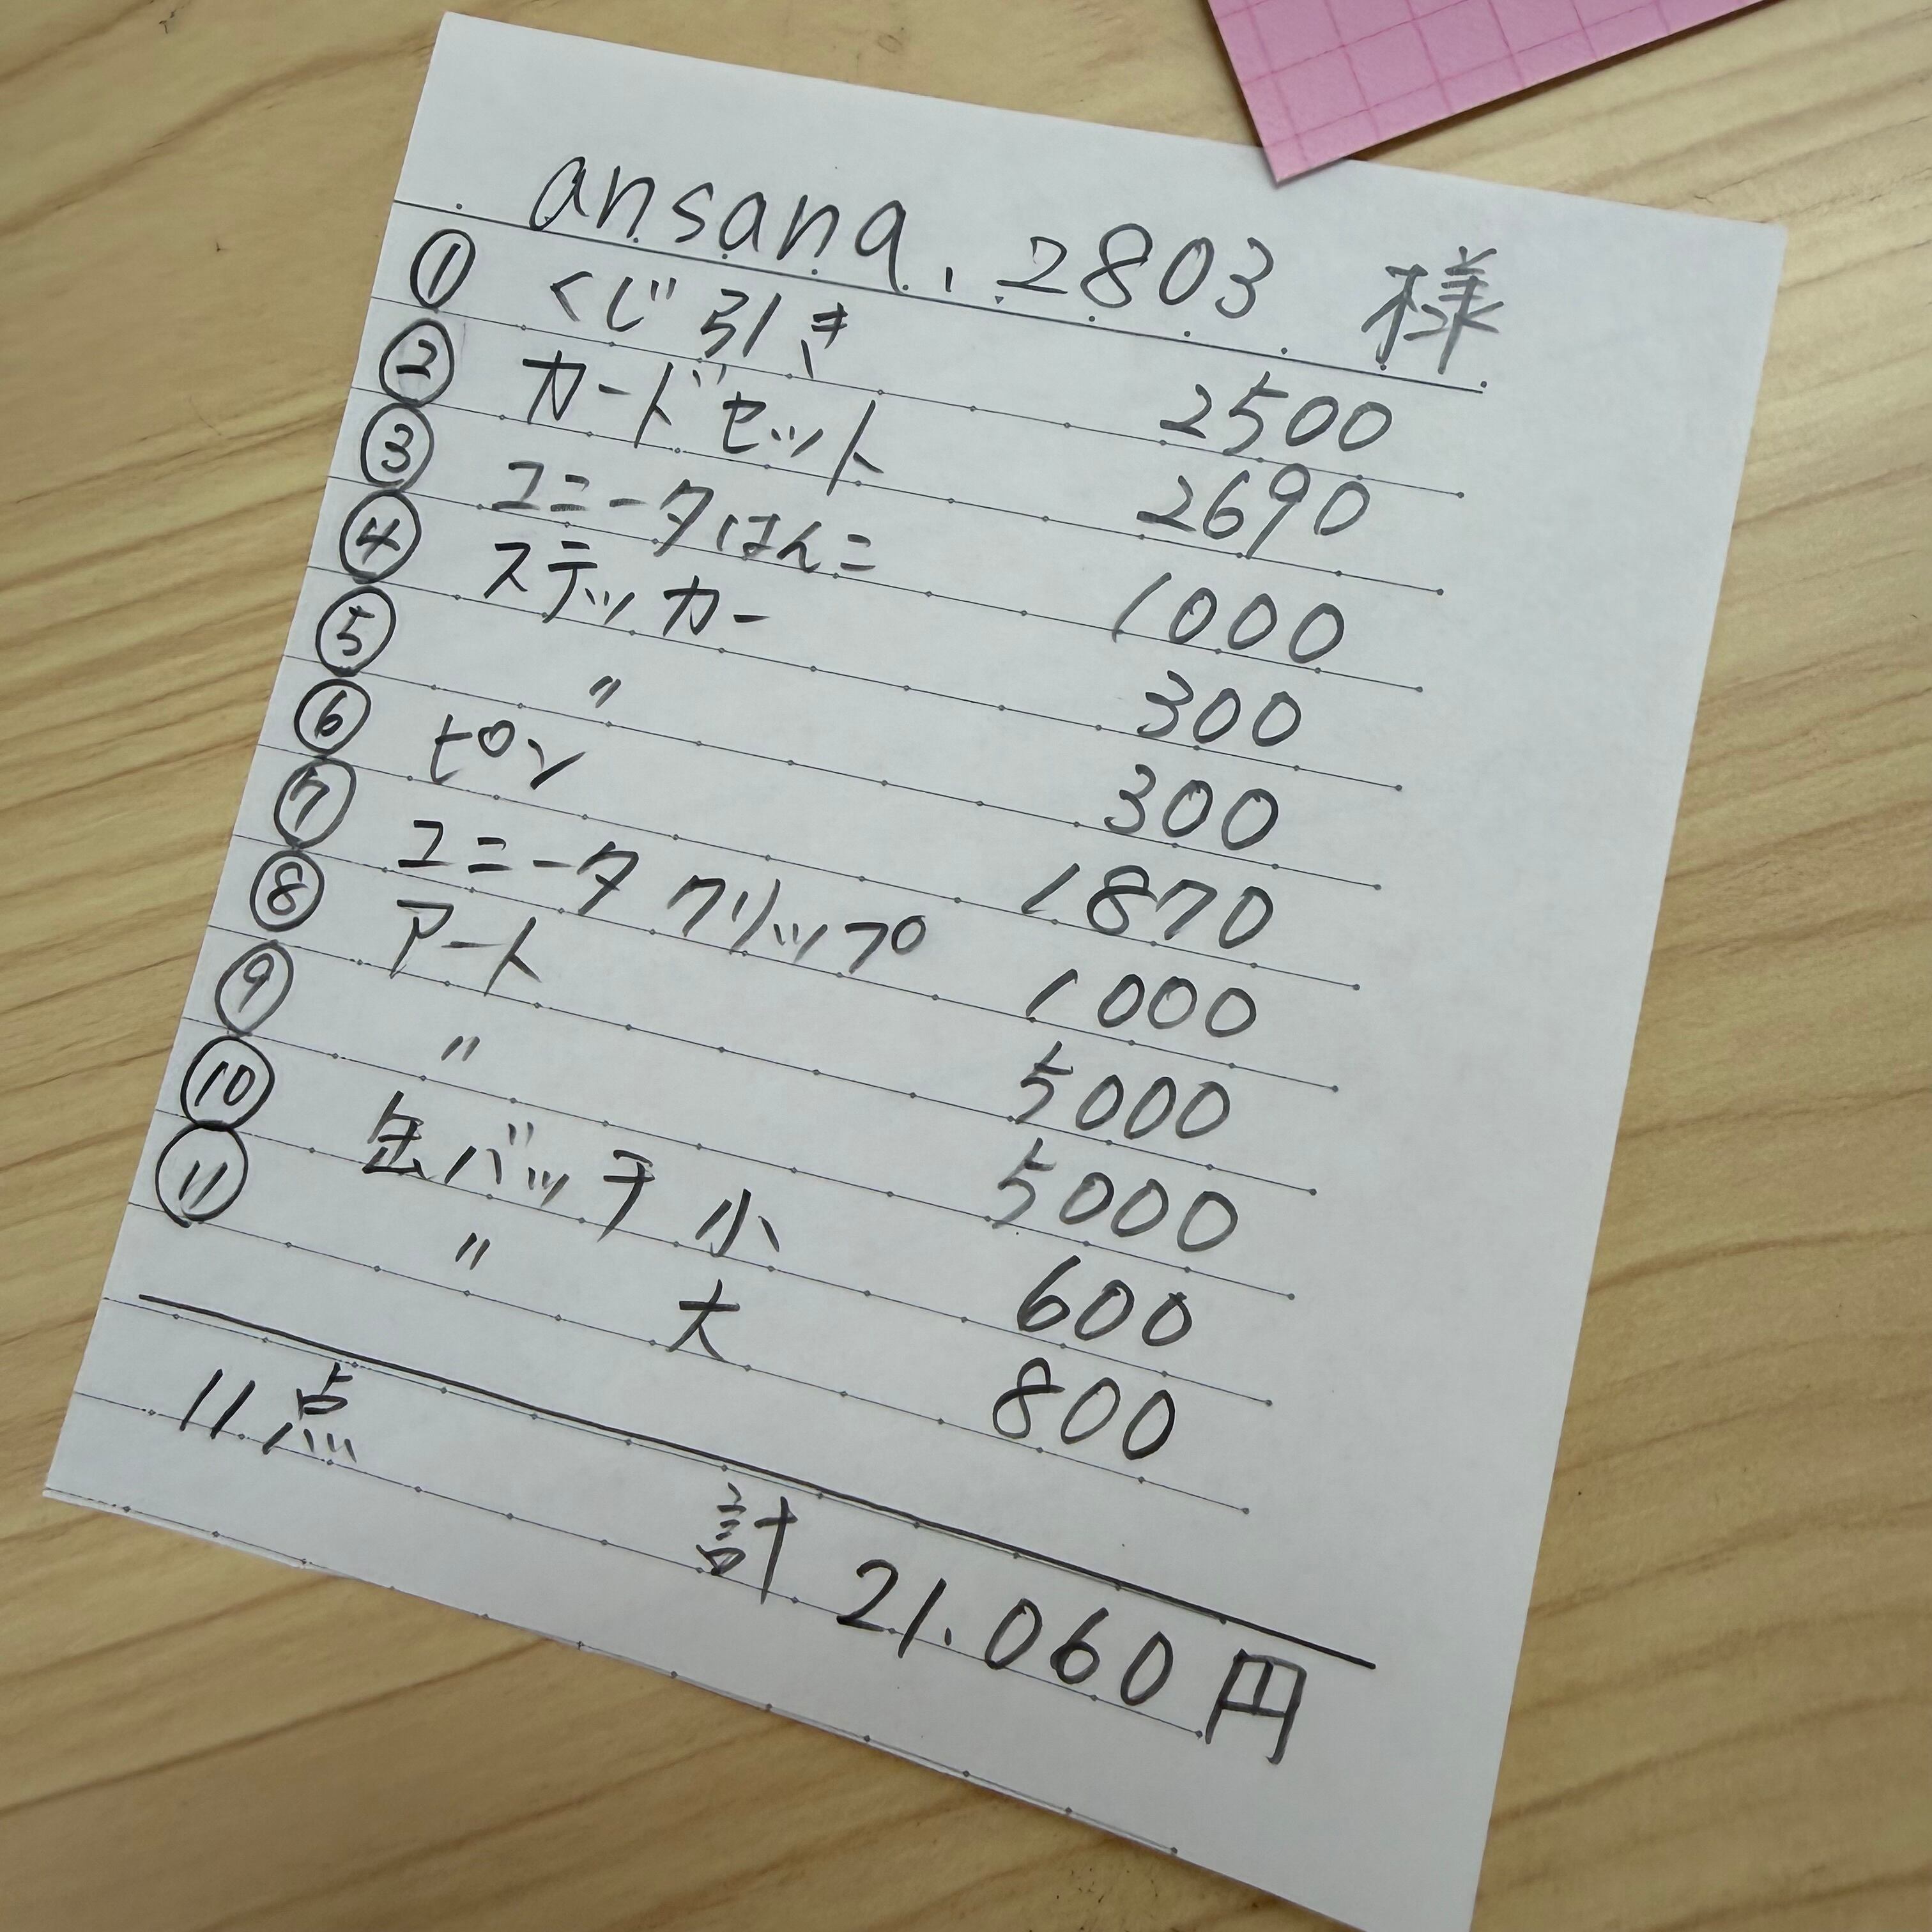 ansana.2803 様
① くじ引き 2500
② カードセット 2690
③ ユニータはんこ 1000
④ ステッカー 300
⑤ 〃 300
⑥ ピン 1870
⑦ ユニータ クリップ 1000
⑧ アート 5000
⑨ 〃 5000
⑩ 缶バッチ 小 600
⑪ 〃 大 800
11点
計 21.060円